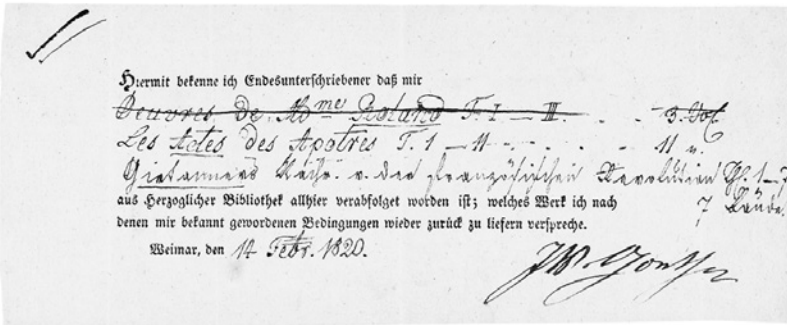 Hiermit bekenne ich Endesunterschriebener daß mir
Oeuvres de Mdme Roland T. I — III. . . 3. Vol
Les Actes des Apotres T. 1 — 11 . . . 11 v.
Girtanners Nachr. v. der französischen Revolution Th. 1–7
aus Herzoglicher Bibliothek allhier verabfolget worden ist; welches Werk ich nach
7 Bände.
denen mir bekannt gewordenen Bedingungen wieder zurück zu liefern verspreche.
Weimar, den 12 Febr. 1820.
JWvGoethe